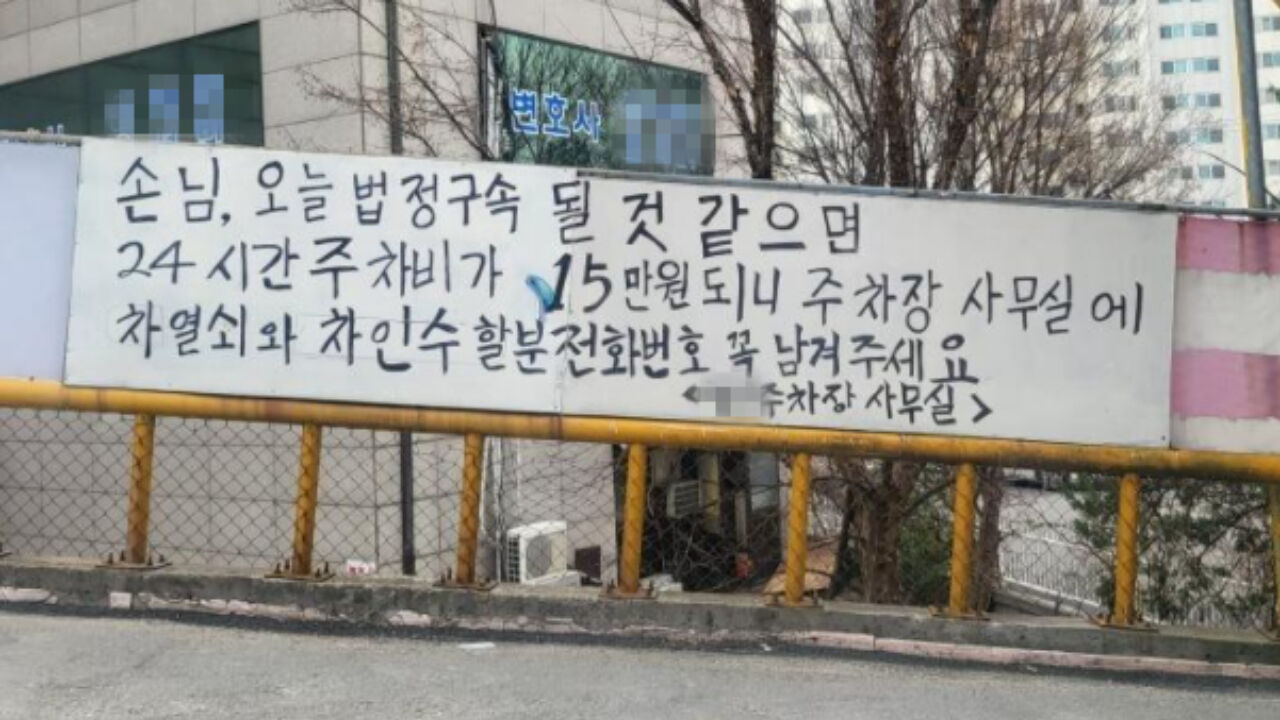 변호사
손님, 오늘 법정구속 될 것 같으면
24시간 주차비가 15만원 되니 주차장 사무실에
차열쇠와 차인수 할분 전화번호 꼭 남겨주세요
주차장 사무실>